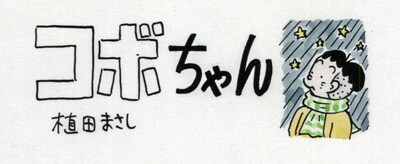 コボちゃん
植田まさし